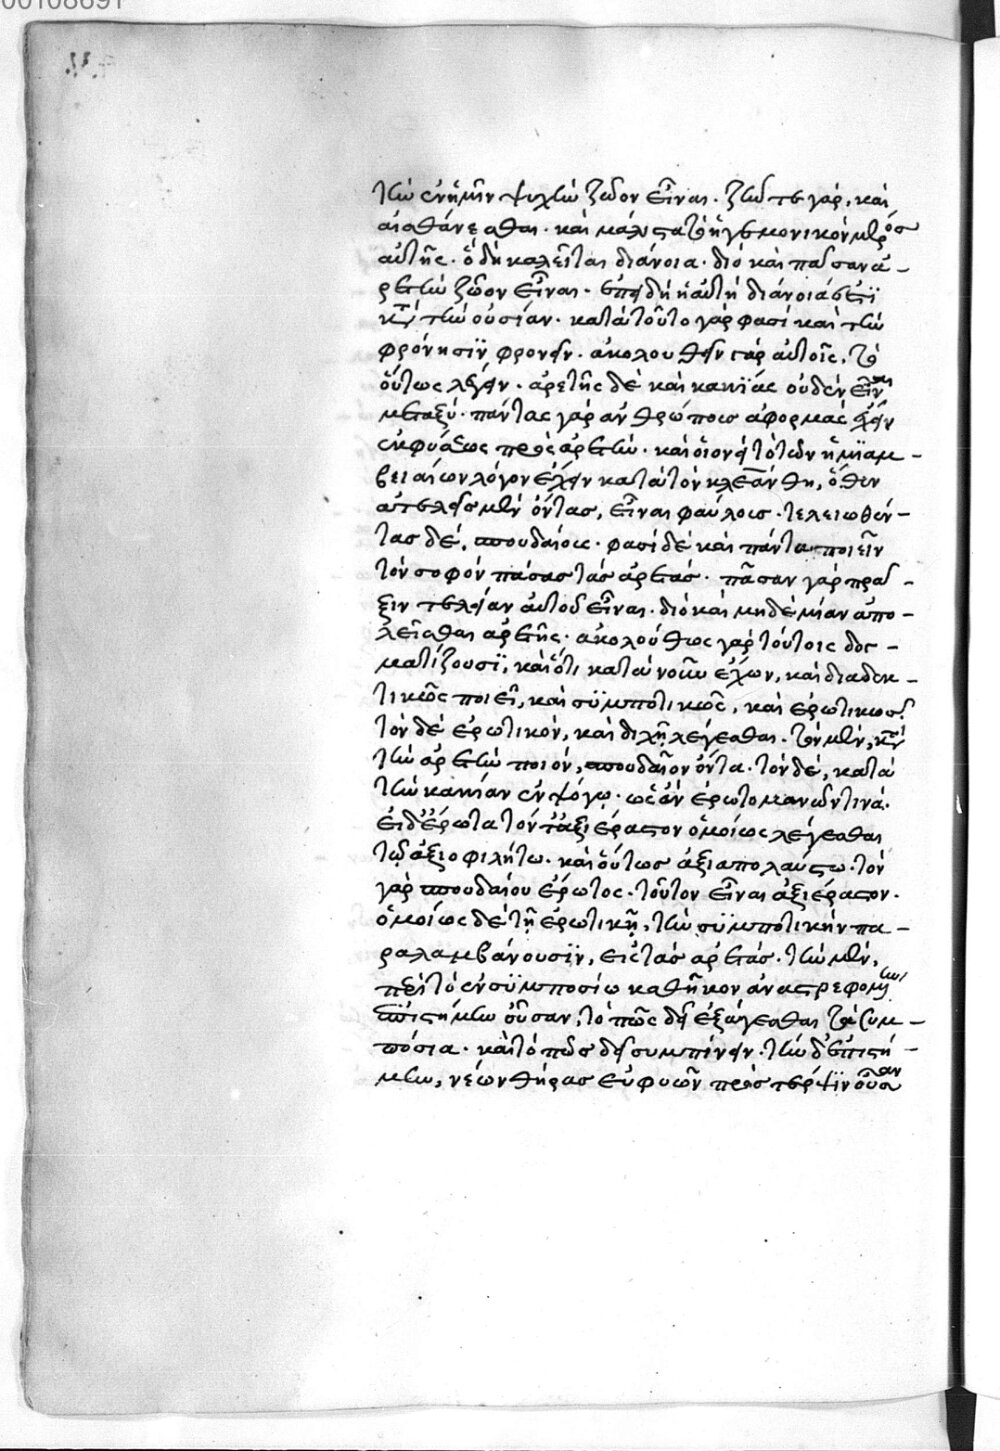 00108691
τὴν ἐν ἡμῖν ψυχὴν ζῶον εἶναι· ζῆν τε γὰρ, καὶ
αἰσθάνεσθαι· καὶ μάλιστα τὸ ἡγεμονικὸν μέρος
αὐτῆς· ὃ δὴ καλεῖται διάνοια· διὸ καὶ πᾶσαν ἀ-
ρετὴν ζῶον εἶναι· ἐπειδὴ ἡ αὐτὴ διάνοιά ἐστι
κατὰ τὴν οὐσίαν· κατὰ τοῦτο γάρ φασι καὶ τὴν
φρόνησιν φρονεῖν· ἀκολουθεῖν γὰρ αὐτοῖς, τὸ
οὕτως λέγειν· ἀρετῆς δὲ καὶ κακίας οὐδὲν εἶναι
μεταξύ· πάντας γὰρ ἀνθρώπους ἀφορμὰς ἔχειν
ἐκ φύσεως πρὸς ἀρετήν· καὶ οἱονεὶ τὸ τῶν ἡμιαμ-
βειαίων λόγον ἔχειν κατὰ τὸν κλεάνθη, ὅθεν
ἀτελεῖς μὲν ὄντας, εἶναι φαύλους· τελειωθέν-
τας δὲ, σπουδαίους· φασὶ δὲ καὶ πάντα ποιεῖν
τὸν σοφὸν πάσας τὰς ἀρετάς· πᾶσαν γὰρ πρᾶ-
ξιν τελείαν αὐτοῦ εἶναι· διὸ καὶ μηδεμίαν ἀπο-
λεῖσθαι ἀρετῆς· ἀκολούθως γὰρ τούτοις δογ-
ματίζουσι, καὶ ὅτι κατὰ νοῦν ἔχων, καὶ διαδεκ-
τικῶς ποιεῖ, καὶ συμποτικῶς, καὶ ἐρωτικῶς·
τὸν δὲ ἐρωτικὸν, καὶ διχῇ λέγεσθαι· τὸν μὲν, κατὰ
τὴν ἀρετὴν ποιὸν, σπουδαῖον ὄντα· τὸν δὲ, κατὰ
τὴν κακίαν ἐν ψόγῳ· ὡς ἂν ἐρωτομανῶν τινά·
ἐιδ' ἔρωτα τὸν τ' ἀξιέραστον ὁμοίως λέγεσθαι
τῷ ἀξιοφιλήτω· καὶ οὕτως ἀξιαπολαύστω· τὸν
γὰρ σπουδαίου ἔρωτος· τοῦτον εἶναι ἀξιέραστον·
ὁμοίως δὲ τῇ ἐρωτικῇ, τὴν συμποτικὴν πα-
ραλαμβάνουσιν, εἰς τὰς ἀρετάς· τὴν μὲν,
περὶ τὸ ἐν συμποσίω καθῆκον ἀναστρεφομένην
ἐπιστήμην οὖσαν, τὸ πῶς δεῖ ἐξάγεσθαι τὰ συμ-
πόσια· καὶ τὸ πῶς δεῖ συμπίνειν· τὴν δ' ἐπιστή-
μην, νέων θήρας εὐφυῶν πρὸς τέρψιν οὖσαν